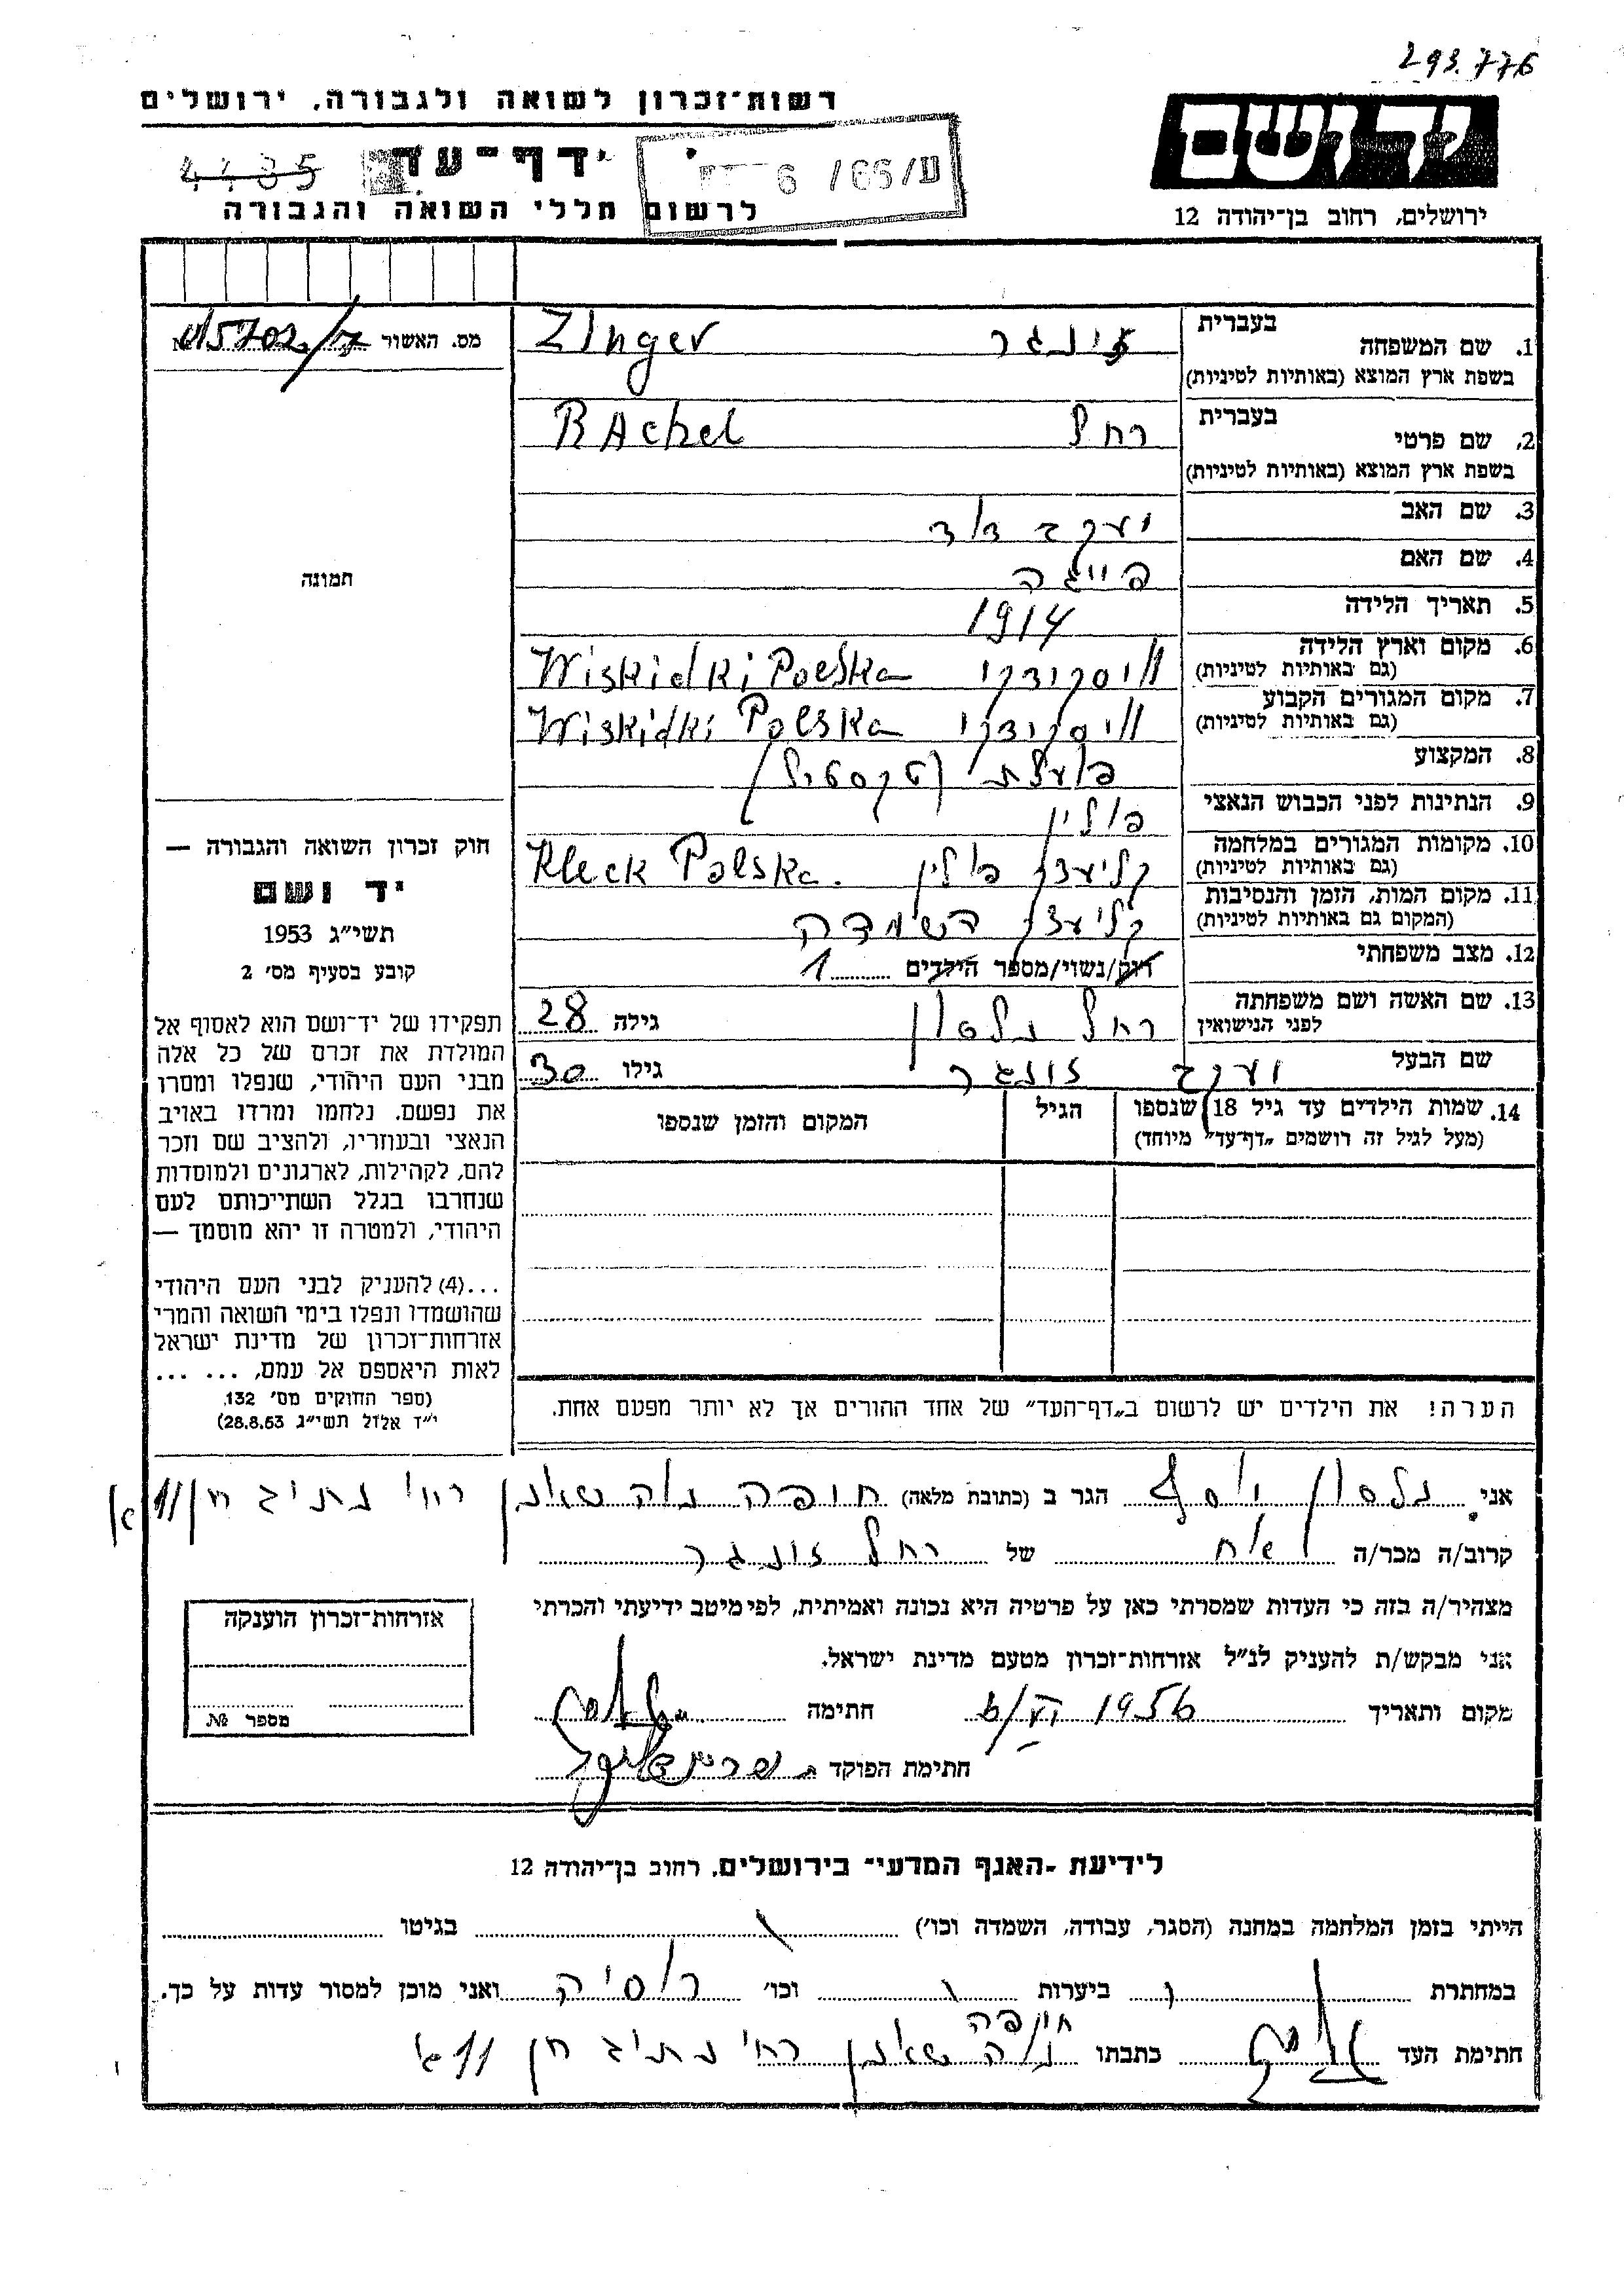 293.776
רשות־זכרון לשואה ולגבורה, ירושלים
יד ושם
ירושלים, רחוב בן־יהודה 12
4435
דף־עד
6 /66/ט
לרשום חללי השואה והגבורה
מס. האשור
1. שם המשפחה בעברית זינגר Zinger
בשפת ארץ המוצא (באותיות לטיניות)
2. שם פרטי בעברית רחל RAchel
בשפת ארץ המוצא (באותיות לטיניות)
3. שם האב יעקב דוד
4. שם האם פייגה
5. תאריך הלידה 1914
6. מקום וארץ הלידה (גם באותיות לטיניות) וויסקידקי Wiskidki Polska
7. מקום המגורים הקבוע (גם באותיות לטיניות) וויסקידקי Wiskidki Polska
8. המקצוע פועלת (טקסטיל)
9. הנתינות לפני הכבוש הנאצי פולין
10. מקומות המגורים במלחמה (גם באותיות לטיניות) קליעצק פולין Kleck Polska.
11. מקום המות, הזמן והנסיבות (המקום גם באותיות לטיניות) קליעצק השמדה
12. מצב משפחתי רוק/נשוי/מספר הילדים 1
13. שם האשה ושם משפחתה לפני הנישואין רחל נלסון גילה 28
שם הבעל יעקב זינגר גילו 30
14. שמות הילדים עד גיל 18 שנספו הגיל המקום והזמן שנספו
(מעל לגיל זה רושמים „דף־עד” מיוחד)
תמונה
חוק זכרון השואה והגבורה —
יד ושם
תשי״ג 1953
קובע בסעיף מס׳ 2
תפקידו של יד־ושם הוא לאסוף אל
המולדת את זכרם של כל אלה
מבני העם היהודי, שנפלו ומסרו
את נפשם. נלחמו ומרדו באויב
הנאצי ובעוזריו, ולהציב שם וזכר
להם, לקהילות, לארגונים ולמוסדות
שנחרבו בגלל השתייכותם לעם
היהודי, ולמטרה זו יהא מוסמך —
...(4) להעניק לבני העם היהודי
שהושמדו ונפלו בימי השואה והמרי
אזרחות־זכרון של מדינת ישראל
לאות היאספם אל עמם, ... ...
(ספר החוקים מס׳ 132,
י״ד אלול תשי״ג 28.8.53)
הערה! את הילדים יש לרשום ב„דף־העד” של אחד ההורים אך לא יותר מפעם אחת.
אני נלסון יוסף הגר ב (כתובת מלאה) חיפה נוה שאנן רח׳ נתיב חן 11
קרוב/ה מכר/ה אח של רחל זינגר
מצהיר/ה בזה כי העדות שמסרתי כאן על פרטיה היא נכונה ואמיתית, לפי מיטב ידיעתי והכרתי
אני מבקש/ת להעניק לנ״ל אזרחות־זכרון מטעם מדינת ישראל.
מקום ותאריך 6/VI 1956 חתימה
חתימת הפוקד
אזרחות־זכרון הוענקה
מספר №
לידיעת ־האגף המדעי־ בירושלים, רחוב בן־יהודה 12
הייתי בזמן המלחמה במחנה (הסגר, עבודה, השמדה וכו׳) בגיטו
במחתרת ביערות וכו׳ רוסיה ואני מוכן למסור עדות על כך.
חתימת העד כתבתו חיפה נוה שאנן רח׳ נתיב חן 11